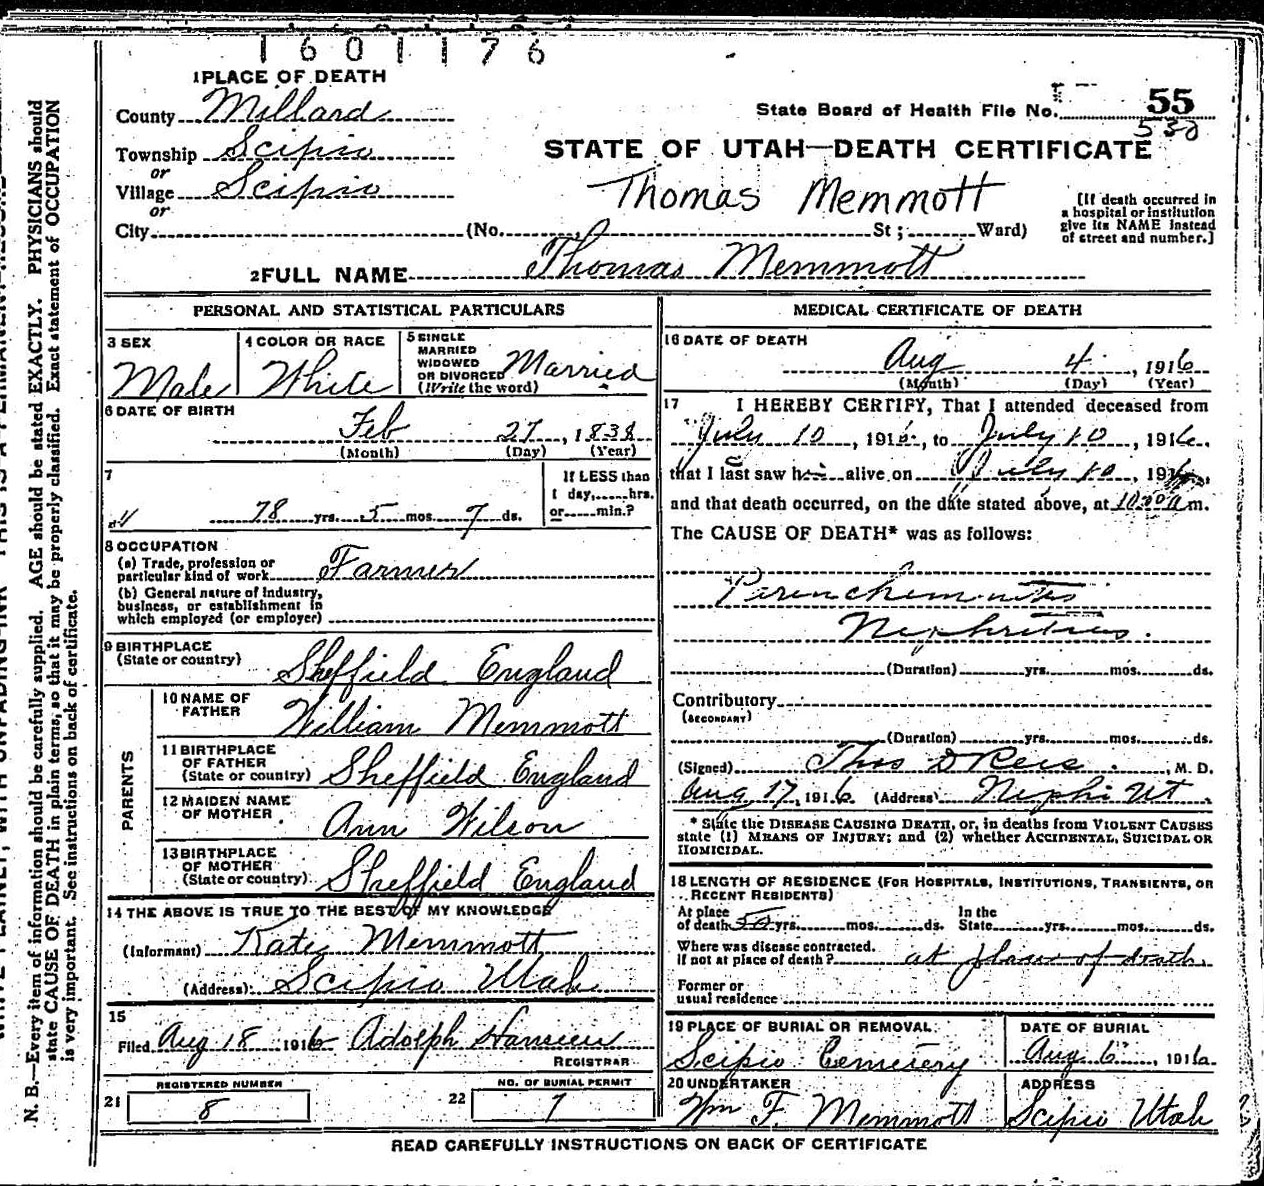 1601176
1 PLACE OF DEATH
County Millard
State Board of Health File No. 55
530
Township Scipio
or
Village Scipio
or
STATE OF UTAH—DEATH CERTIFICATE
Thomas Memmott
[If death occurred in
a hospital or institution
give its NAME instead
of street and number.]
City (No. St; Ward)
2 FULL NAME Thomas Memmott
PERSONAL AND STATISTICAL PARTICULARS
3 SEX
Male
4 COLOR OR RACE
White
5 SINGLE
MARRIED
WIDOWED
OR DIVORCED
(Write the word)
Married
6 DATE OF BIRTH
Feb 27, 1838
(Month) (Day) (Year)
7
78 yrs. 5 mos. 7 ds.
If LESS than
1 day, hrs.
or min.?
8 OCCUPATION
(a) Trade, profession or
particular kind of work Farmer
(b) General nature of industry,
business, or establishment in
which employed (or employer)
9 BIRTHPLACE
(State or country) Sheffield England
PARENTS
10 NAME OF
FATHER
William Memmott
11 BIRTHPLACE
OF FATHER
(State or country) Sheffield England
12 MAIDEN NAME
OF MOTHER
Ann Wilson
13 BIRTHPLACE
OF MOTHER
(State or country) Sheffield England
14 THE ABOVE IS TRUE TO THE BEST OF MY KNOWLEDGE
(Informant) Kate Memmott
(Address) Scipio Utah
15
Filed Aug 18 1916 Adolph Hansen
REGISTRAR
REGISTERED NUMBER
21 8
NO. OF BURIAL PERMIT
22 7
MEDICAL CERTIFICATE OF DEATH
16 DATE OF DEATH
Aug 4, 1916
(Month) (Day) (Year)
17 I HEREBY CERTIFY, That I attended deceased from
July 10, 1916, to July 10, 1916,
that I last saw him alive on July 10, 1916,
and that death occurred, on the date stated above, at m.
The CAUSE OF DEATH* was as follows:
Nephritis.
(Duration) yrs. mos. ds.
Contributory
(SECONDARY)
(Duration) yrs. mos. ds.
(Signed) Thos D Rees, M. D.
Aug 17, 1916 (Address) Nephi Ut.
* State the DISEASE CAUSING DEATH, or, in deaths from VIOLENT CAUSES
state (1) MEANS OF INJURY; and (2) whether ACCIDENTAL, SUICIDAL OR
HOMICIDAL.
18 LENGTH OF RESIDENCE (FOR HOSPITALS, INSTITUTIONS, TRANSIENTS, OR
RECENT RESIDENTS)
At place
of death 50 yrs. mos. ds.
In the
State yrs. mos. ds.
Where was disease contracted.
if not at place of death? at place of death.
Former or
usual residence
19 PLACE OF BURIAL OR REMOVAL.
Scipio Cemetery
DATE OF BURIAL
Aug 6, 1916
20 UNDERTAKER
Wm F. Memmott
ADDRESS
Scipio Utah
READ CAREFULLY INSTRUCTIONS ON BACK OF CERTIFICATE
N. B.—Every item of information should be carefully supplied. AGE should be stated EXACTLY. PHYSICIANS should
state CAUSE OF DEATH in plain terms, so that it may be properly classified. Exact statement of OCCUPATION
is very important. See instructions on back of certificate.